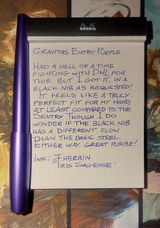 RHODIA
GRAVITAS ENTRY: PURPLE
HAD A HELL OF A TIME
FIGHTING WITH DHL FOR
THIS. BUT I GOT IT, IN A
BLACK NIB AS REQUESTED!
IT FEELS LIKE A TRULY
PERFECT FIT FOR MY HAND,
AT LEAST COMPARED TO THE
SENTRY. THOUGH I DO
WONDER IF THE BLACK NIB
HAS A DIFFERENT FLOW
THAN THE BASIC STEEL.
EITHER WAY, GREAT PURPLE!
INK: J. HERBIN
"IRIS SAGESSE"